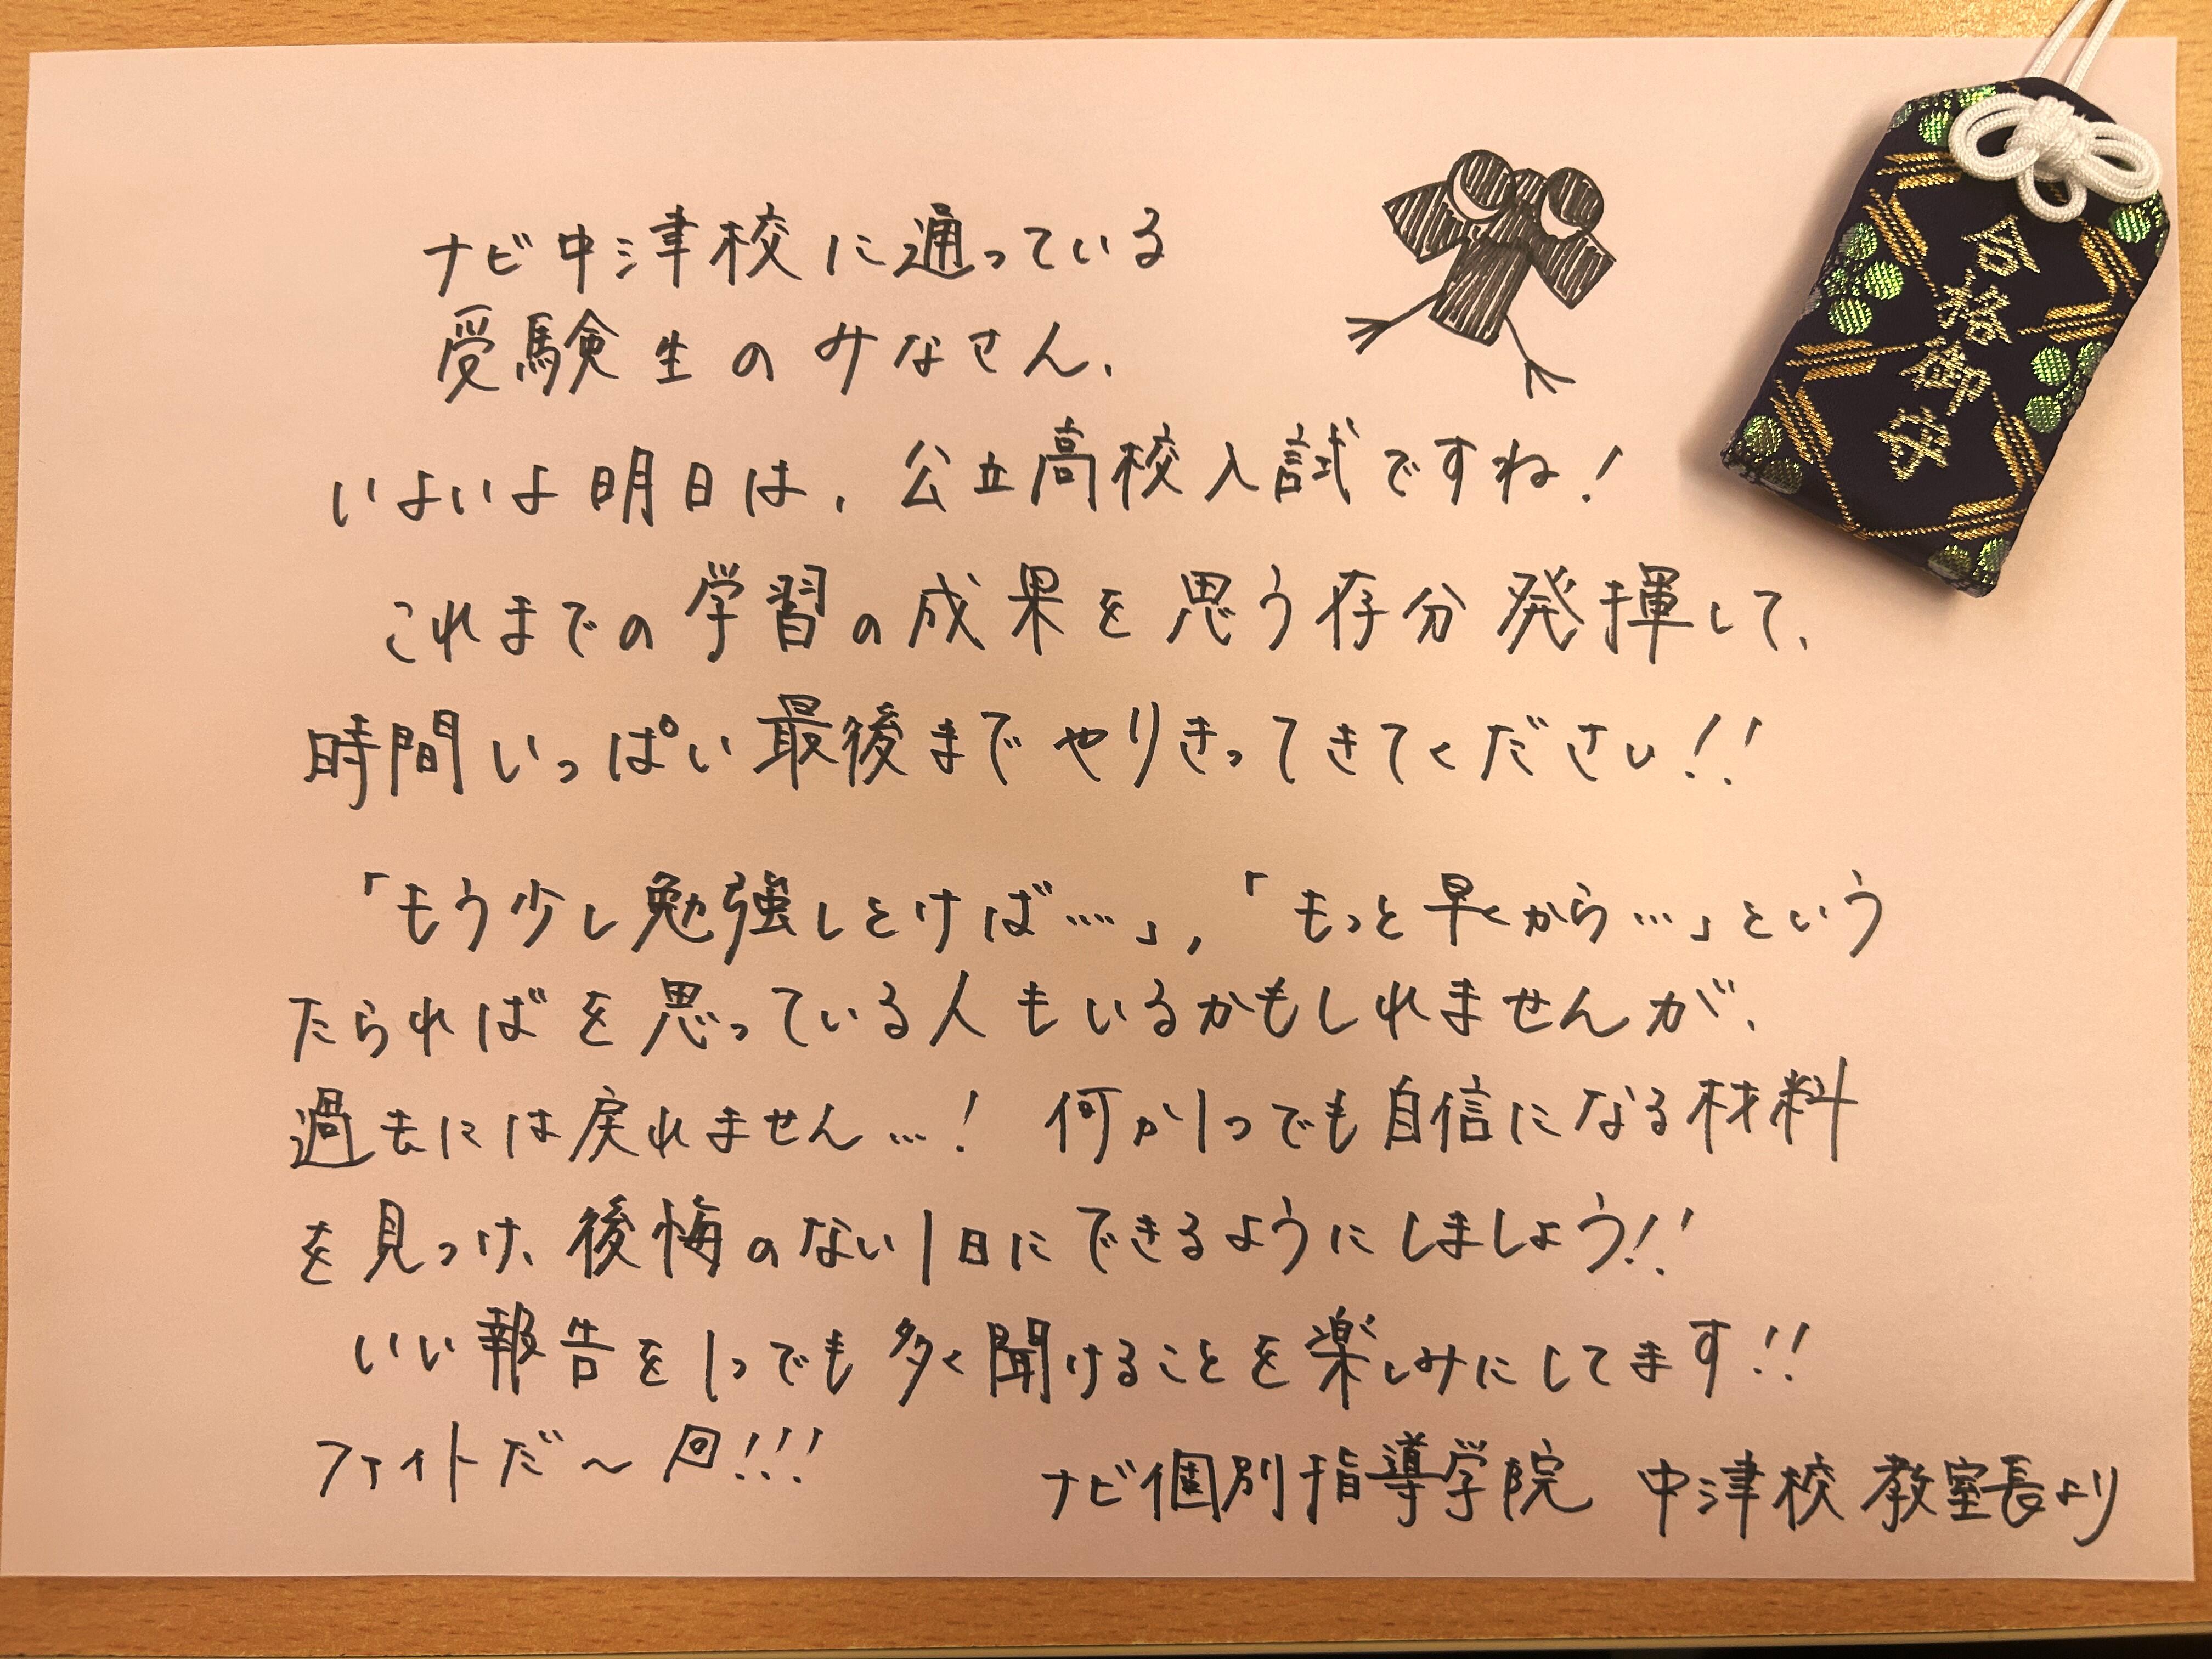 ナビ中津校に通っている
受験生のみなさん、
いよいよ明日は、公立高校入試ですね!
これまでの学習の成果を思う存分発揮して、
時間いっぱい最後までやりきってきてください!!
「もう少し勉強しとけば……」,「もっと早くから…」という
たられば を思っている人もいるかもしれませんが、
過去には戻れません…! 何か1つでも自信になる材料
を見つけ、後悔のない1日にできるようにしましょう!!
いい報告を1つでも多く聞けることを楽しみにしてます!!
ファイトだ〜!!!
ナビ個別指導学院 中津校 教室長より
合格御守